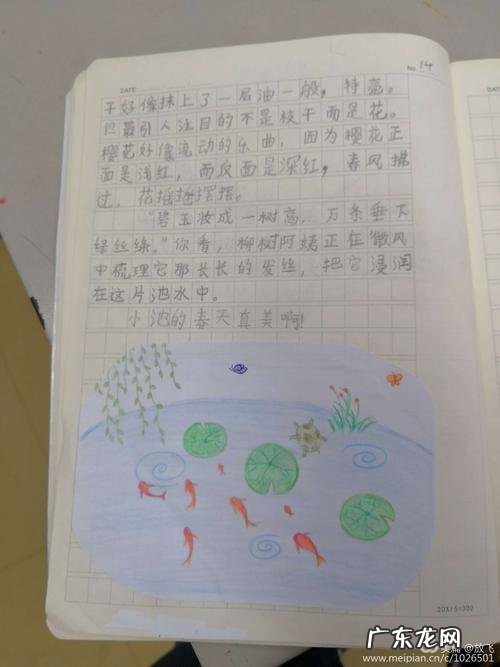 No. 14
DATE
干好像抹上了一层油一般，特亮。
但最引人注目的不是枝干而是花。
樱花好像流动的乐曲，因为樱花正
面是浅红，而反面是深红，春风拂
过，花摇摇摆摆。
“碧玉妆成一树高，万条垂下
绿丝绦。”你看，柳树阿姨正在微风
中梳理它那长长的发丝，把它浸润
在这片池水中。
小池的春天真美啊!
20X15=300
美篇 @放飞
www.meipian.cn/c/1026501
广东龙网